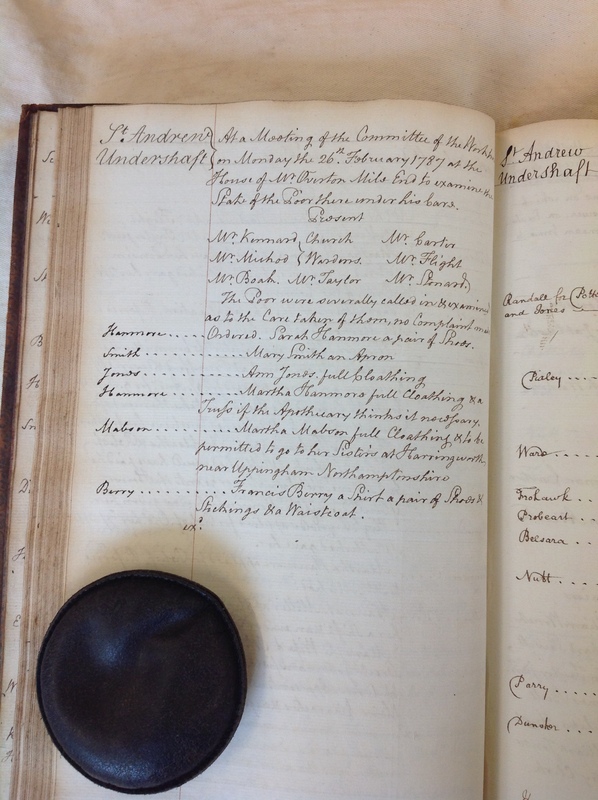 St. Andrew
Undershaft
At a Meeting of the Committee of the
on Monday the 26th February 1787 at the
House of Mr. Overton Mile End to examine the
State of the Poor there under his Care.
Present
Mr. Kennard Church Mr. Carter
Mr. Michod Wardens. Mr. Flight
Mr. Boak. Mr. Taylor Mr. Stonard
The Poor were severally called in & examined
as to the Care taken of them, no Complaint
Hanmore..... Ordered. Sarah Hanmore a pair of Shoes.
Smith ............... Mary Smith an Apron
Jones ............... Ann Jones. full Cloathing
Hanmore ............... Martha Hanmore full Cloathing & a
Truss if the Apothecary thinks it necessary.
Mabson ............... Martha Mabson full Cloathing & to be
permitted to go to her Sisters at Harringworth
near Uppingham Northamptonshire
Berry ............... Francis Berry a Shirt a pair of Shoes &
Stockings & a Waistcoat.
exd.
St. Andrew
Undershaft
Randall for
and Jones
Ware....
Frohawk...
Probeart...
Belsara...
Nutt...
Parry....
Dunster...